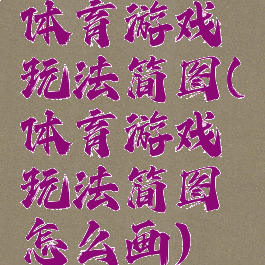 体育游戏
玩法简图(
体育游戏
玩法简图
怎么画)